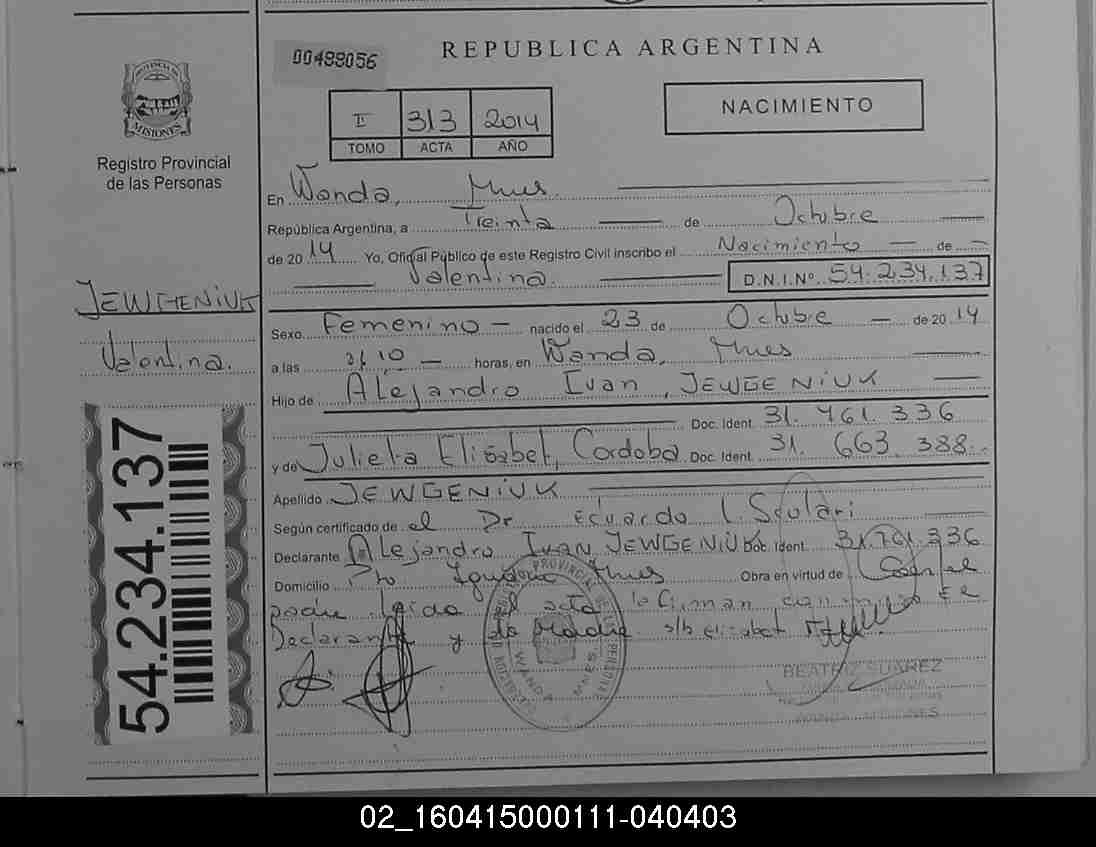 00488056
REPUBLICA ARGENTINA
PROVINCIA DE
MISIONES
Registro Provincial
de las Personas
II 313 2014
TOMO ACTA AÑO
NACIMIENTO
En Wanda, Mnes
República Argentina, a Treinta de Octubre
de 2014 Yo, Oficial Público de este Registro Civil inscribo el Nacimiento de
Valentina. D.N.I.Nº 54.234.137
JEWGENIUK
Valentina.
54.234.137
Sexo Femenino nacido el 23 de Octubre de 2014
a las 10 horas, en Wanda, Mnes
Hijo de Alejandro Ivan, JEWGENIUK
Doc. Ident. 31.761.336
y de Julieta Elisabet, Cordoba Doc. Ident. 31.663.388
Apellido JEWGENIUK
Según certificado de el Dr Ecuardo L. Scolari
Declarante Alejandro Ivan JEWGENIUK Doc. Ident. 31.761.336
Domicilio Pto Iguazu Mnes Obra en virtud de
padre Leida el acta la firman conmigo el
Declarante y la Madre s/b elizabet
PROVINCIAL DE LAS PERSONAS
WANDA MNES
BEATRIZ SUAREZ
WANDA MISIONES
02_160415000111-040403